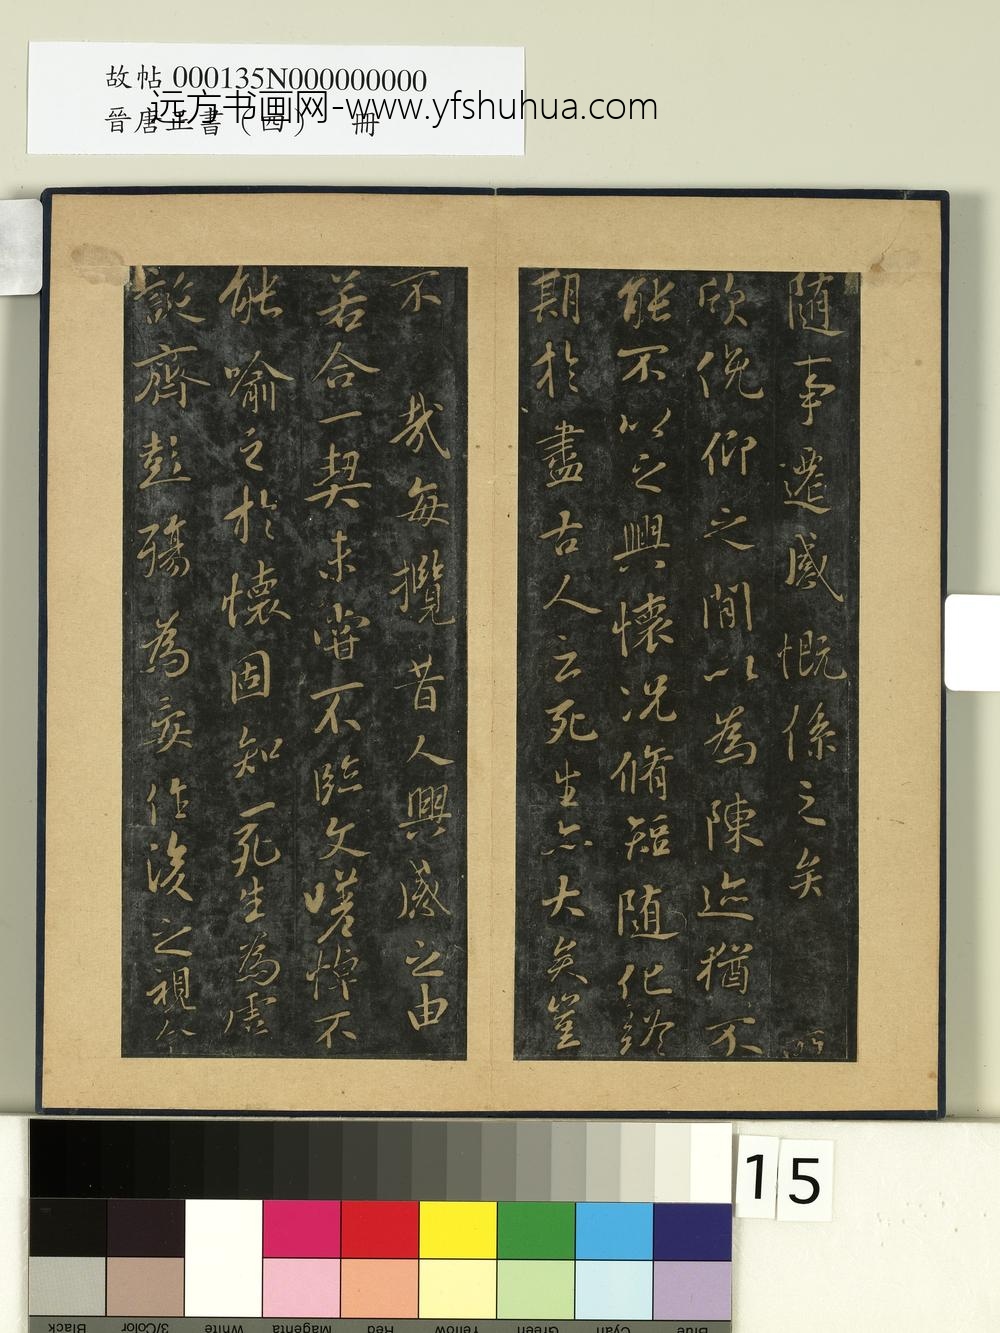 故帖000135N000000000
晉唐正書（四） 冊
远方书画网-www.yfshuhua.com
隨事遷感慨係之矣
欣俛仰之閒以為陳迹猶不
能不以之興懷況脩短隨化
期於盡古人云死生亦大矣豈
不 哉每攬昔人興感之由
若合一契未嘗不臨文嗟悼不
能喻之於懷固知一死生為虛
誕齊彭殤為妄作後之視今
15
Black
3/Color
White
Magenta
Red
Yellow
Green
Cyan
Blue